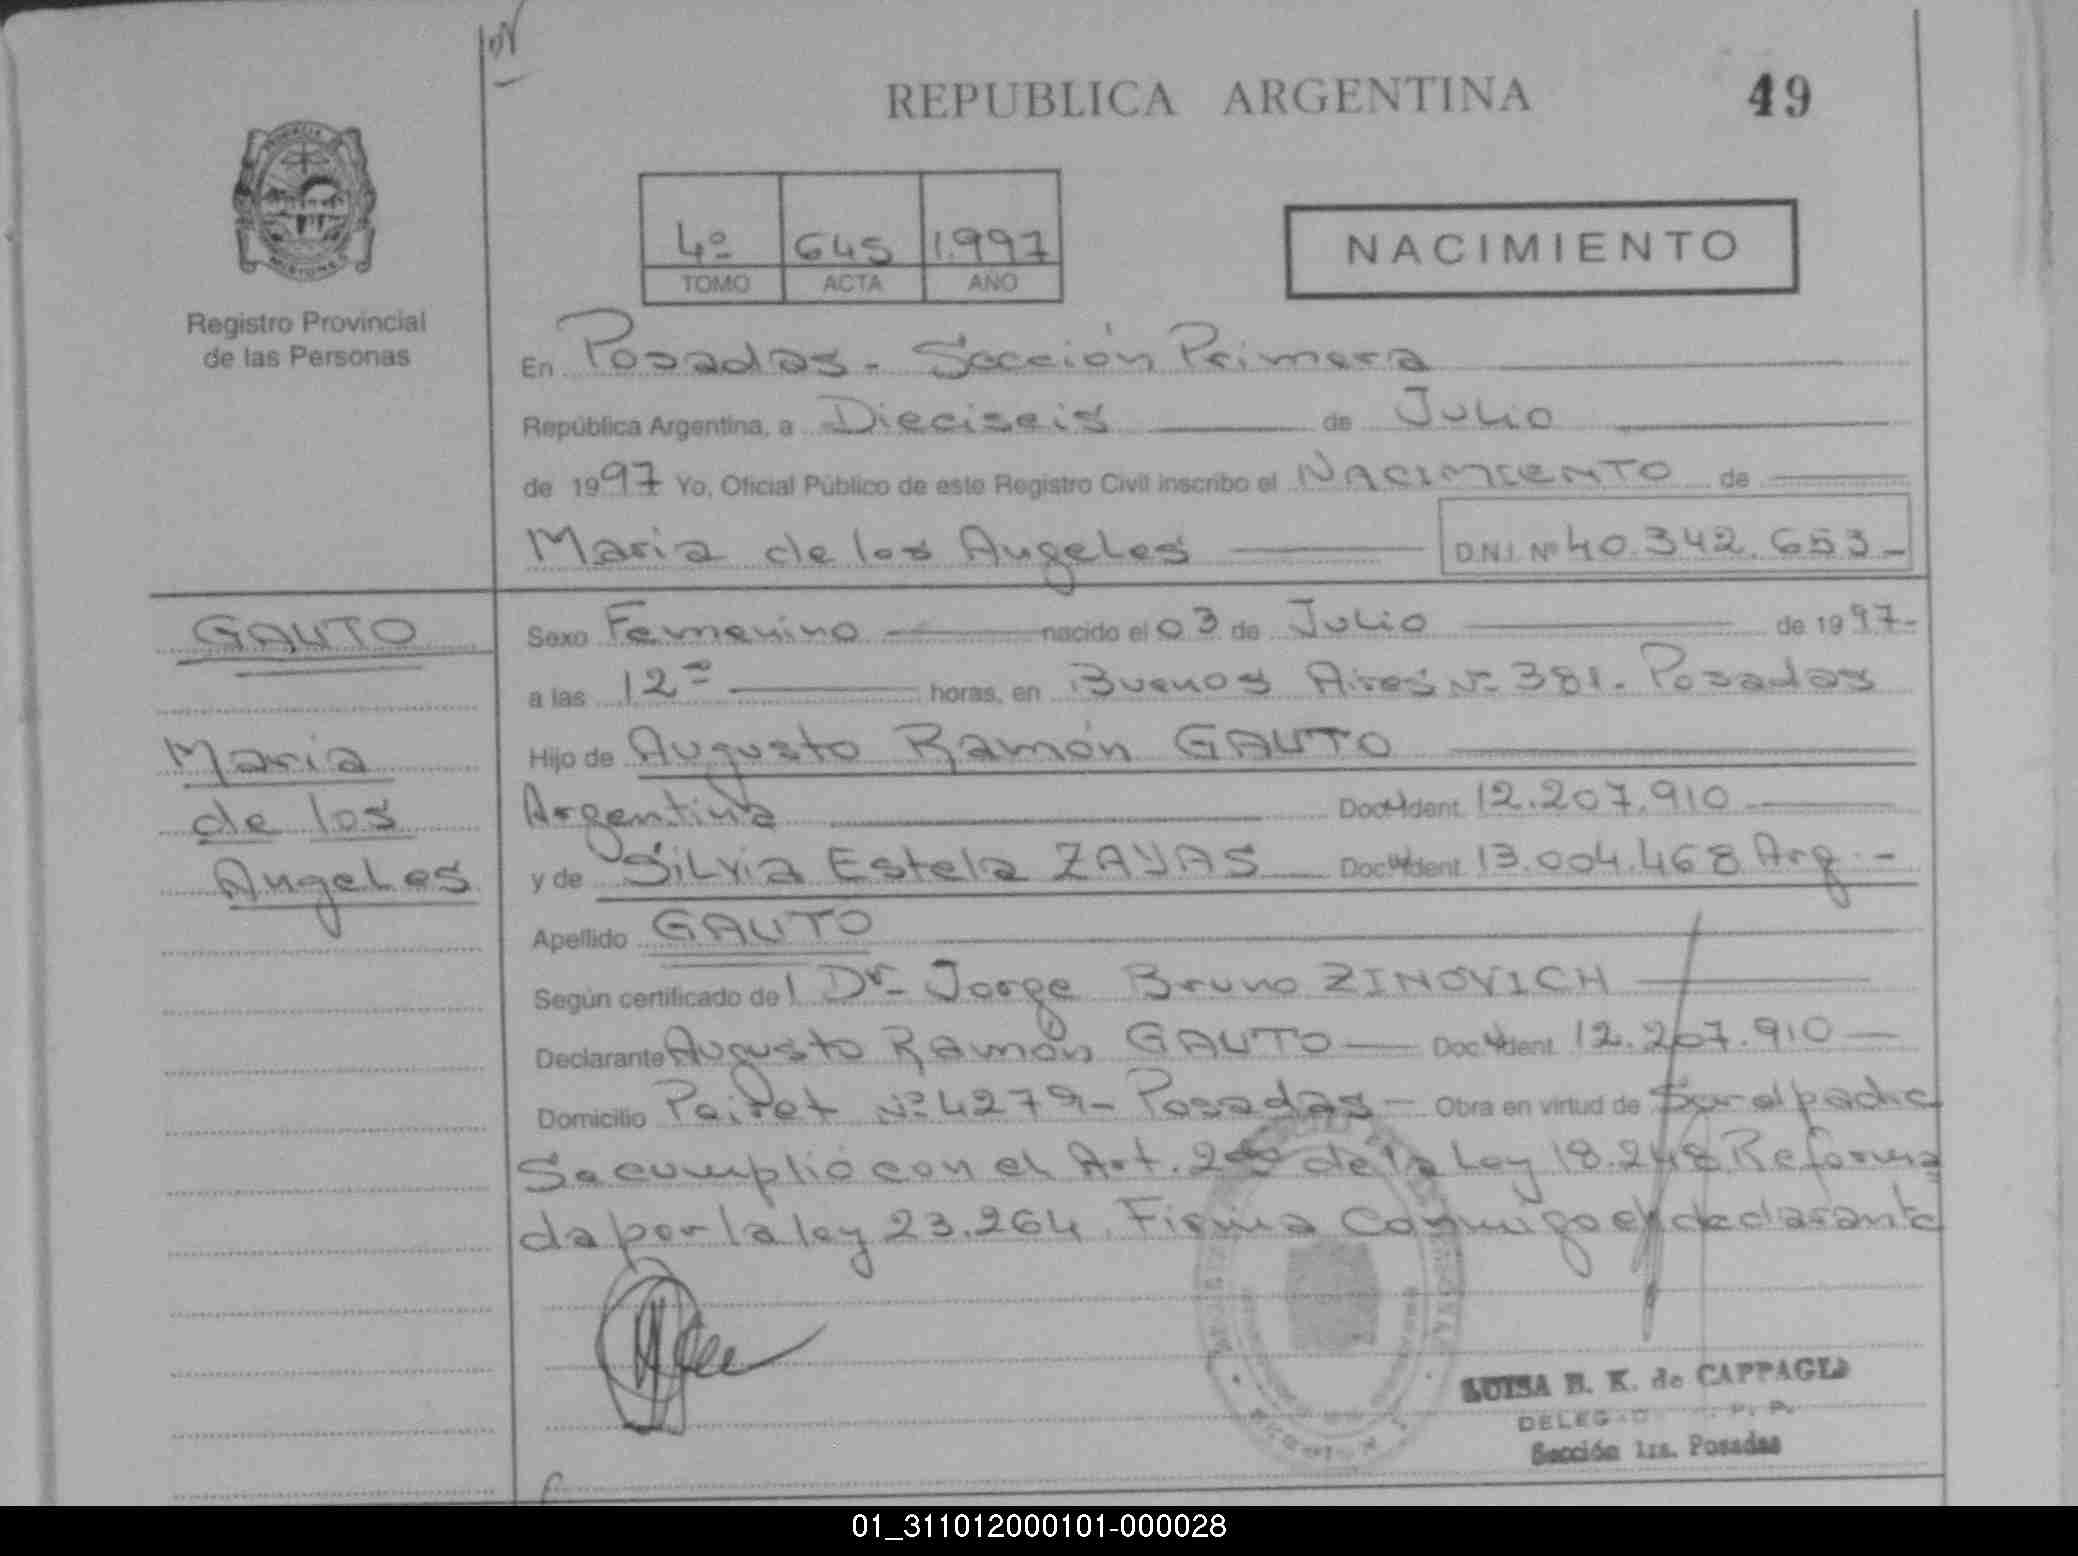 REPUBLICA ARGENTINA
49
4º 645 1.997
TOMO ACTA AÑO
NACIMIENTO
Registro Provincial
de las Personas
En Posadas - Sección Primera
República Argentina, a Dieciseis de Julio
de 1997 Yo, Oficial Público de este Registro Civil inscribo el NACIMIENTO de
Maria de los Angeles D.N.I. Nº 40.342.653-
GAUTO
Maria
de los
Angeles
Sexo Femenino nacido el 03 de Julio de 1997-
a las 12 horas, en Buenos Aires Nº 381. Posadas
Hijo de Augusto Ramón GAUTO
Argentina Doc. Ident. 12.207.910
y de Silvia Estela ZAYAS Doc. Ident. 13.004.468 Arg.-
Apellido GAUTO
Según certificado de l Dr. Jorge Bruno ZINOVICH
Declarante Augusto Ramón GAUTO Doc. Ident. 12.207.910
Domicilio Nº 4279 - Posadas - Obra en virtud de Ser el padre
Se cumplió con el Art. de la Ley 18.248 Reforma
da por la ley 23.264. Firma Conmigo el declarante
LUISA K. de CAPPAGLI
Sección 1ra. Posadas
01_311012000101-000028